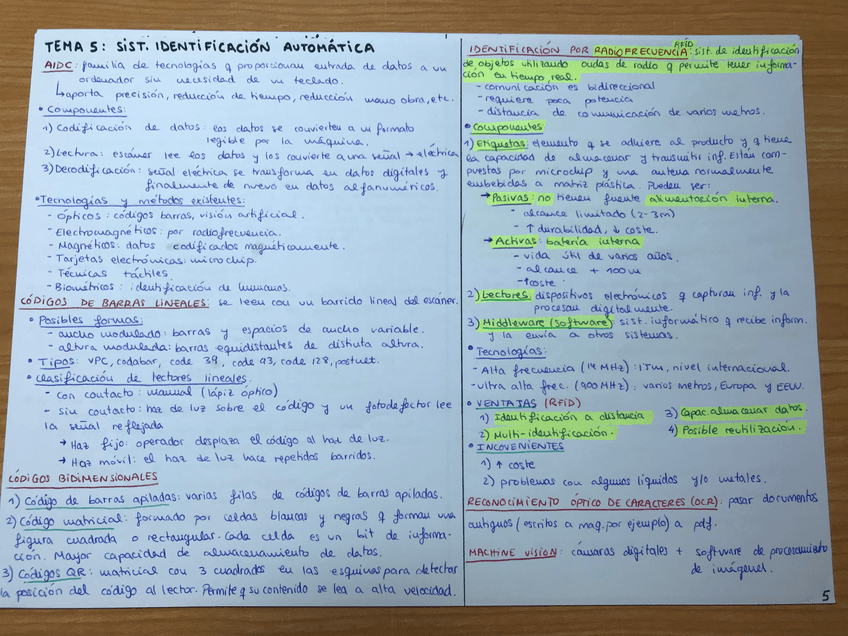 TEMA 5: SIST. IDENTIFICACIÓN AUTOMÁTICA
AIDC: familia de tecnologías q proporcionan entrada de datos a un
ordenador sin necesidad de un teclado.
↳ aporta precisión, reducción de tiempo, reducción mano obra, etc.
• Componentes:
1) Codificación de datos: los datos se convierten a un formato
legible por la máquina.
2) Lectura: escáner lee los datos y los convierte a una señal → eléctrica
3) Decodificación: señal eléctrica se transforma en datos digitales y
finalmente de nuevo en datos alfanuméricos.
• Tecnologías y métodos existentes:
- Ópticos: códigos barras, visión artificial.
- Electromagnéticos: por radiofrecuencia.
- Magnéticos: datos codificados magnéticamente.
- Tarjetas electrónicas: microchip.
- Técnicas táctiles
- Biométricos: identificación de humanos.
CÓDIGOS DE BARRAS LINEALES: se leen con un barrido lineal del escáner.
• Posibles formas:
- ancho modulado: barras y espacios de ancho variable.
- altura modulada: barras equidistantes de distinta altura.
• Tipos: VPC, codabar, code 39, code 93, code 128, postnet.
• Clasificación de lectores lineales
- con contacto: manual (lápiz óptico)
- sin contacto: haz de luz sobre el código y un fotodefector lee
la señal reflejada
→ Haz fijo: operador desplaza el código al haz de luz.
→ Haz móvil: el haz de luz hace repetidos barridos.
CÓDIGOS BIDIMENSIONALES
1) Código de barras apiladas: varias filas de códigos de barras apiladas.
2) Código matricial: formado por celdas blancas y negras q forman una
figura cuadrada o rectangular. Cada celda es un bit de informa-
ción. Mayor capacidad de almacenamiento de datos.
3) Códigos QR: matricial con 3 cuadrados en las esquinas para detectar
la posición del código al lector. Permite q su contenido se lea a alta velocidad.
IDENTIFICACIÓN POR RADIOFRECUENCIA RFID: sist. de identificación
de objetos utilizando ondas de radio q permite tener informa-
ción en tiempo real.
- comunicación es bidireccional
- requiere poca potencia
- distancia de comunicación de varios metros.
• Componentes
1) Etiquetas: elemento q se adhiere al producto y q tiene
la capacidad de almacenar y transmitir inf. Están com-
puestas por microchip y una antena normalmente
embebidas a matriz plástica. Pueden ser:
→ Pasivas: no tienen fuente alimentación interna.
- alcance limitado (2-3m)
- ↑ durabilidad, ↓ coste.
→ Activas: batería interna
- vida útil de varios años.
- alcance + 100 m
- ↑ coste
2) Lectores: dispositivos electrónicos q capturan inf. y la
procesan digitalmente.
3) Middleware (software): sist. informático q recibe inform.
y la envía a otros sistemas.
• Tecnologías:
- Alta frecuencia (14 MHz): 1,5m, nivel internacional.
- Ultra alta frec. (900 MHz): varios metros, Europa y EEUU.
• VENTAJAS (RFID)
1) Identificación a distancia 3) Capac. almacenar datos.
2) Multi-identificación. 4) Posible reutilización.
• INCOVENIENTES
1) ↑ coste
2) problemas con algunos líquidos y/o metales.
RECONOCIMIENTO ÓPTICO DE CARACTERES (OCR): pasar documentos
antiguos (escritos a maq. por ejemplo) a pdf.
MACHINE VISION: cámaras digitales + software de procesamiento
de imágenel.
5